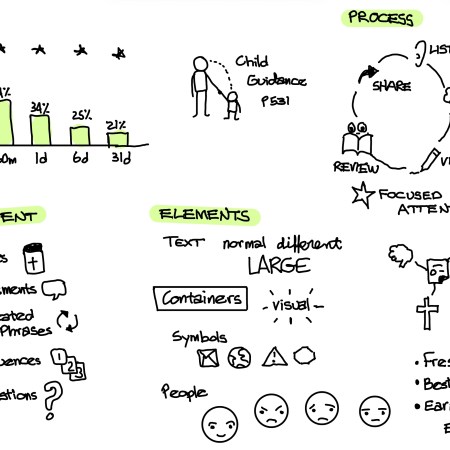 PROCESS
LIST
SHARE
REVIEW
FOCUSED
ATTEN
Child
Guidance
P531
34%
25%
21%
1d
6d
31d
ENT
ments
Phrases
uences
1
2
3
stions
?
ELEMENTS
TEXT normal different
LARGE
Containers
visual
Symbols
People
• Fres
• Best
• Ear